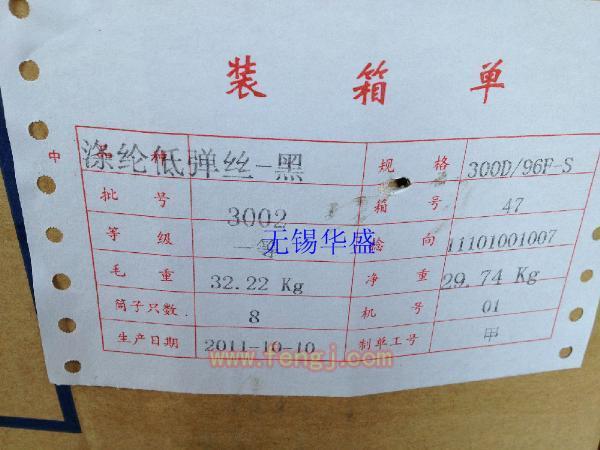 装 箱 单
中 种 涤纶低弹丝-黑 规 格 300D/96F-S
批 号 3002 箱 号 47
等 级 一等 捻 向 11101001007
无锡华盛
毛 重 32.22 Kg 净 重 29.74 Kg
筒子只数 8 机 号 01
生产日期 2011-10-10 制单工号 甲
www.fengj.com